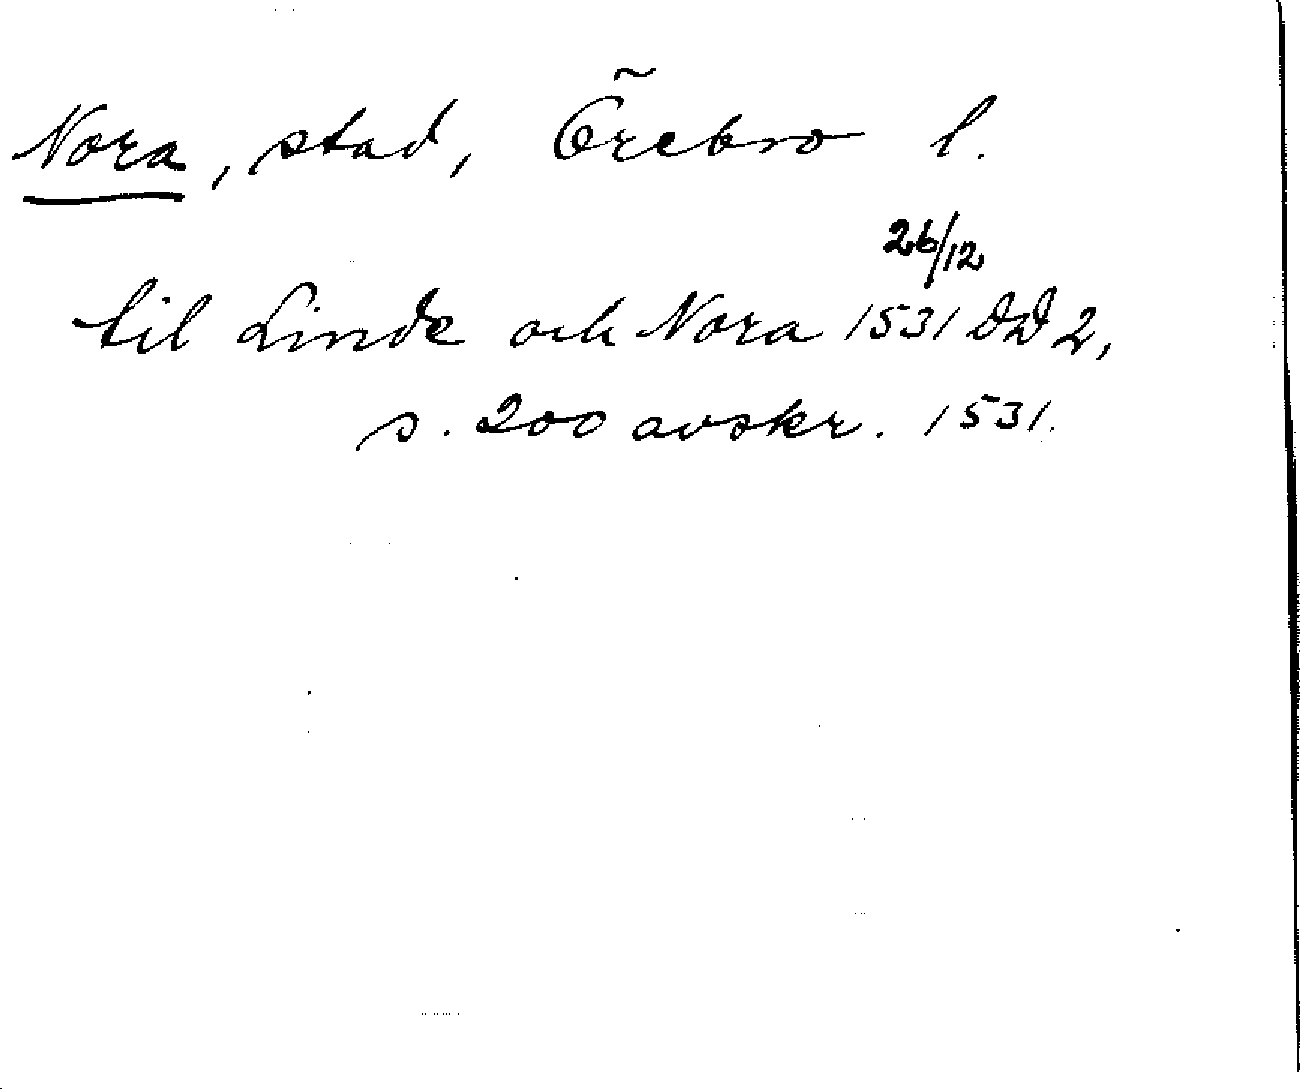 Nora, stad, Örebro l.
26/12
til Linde och Nora 1531 DD 2,
s. 200 avskr. 1531.